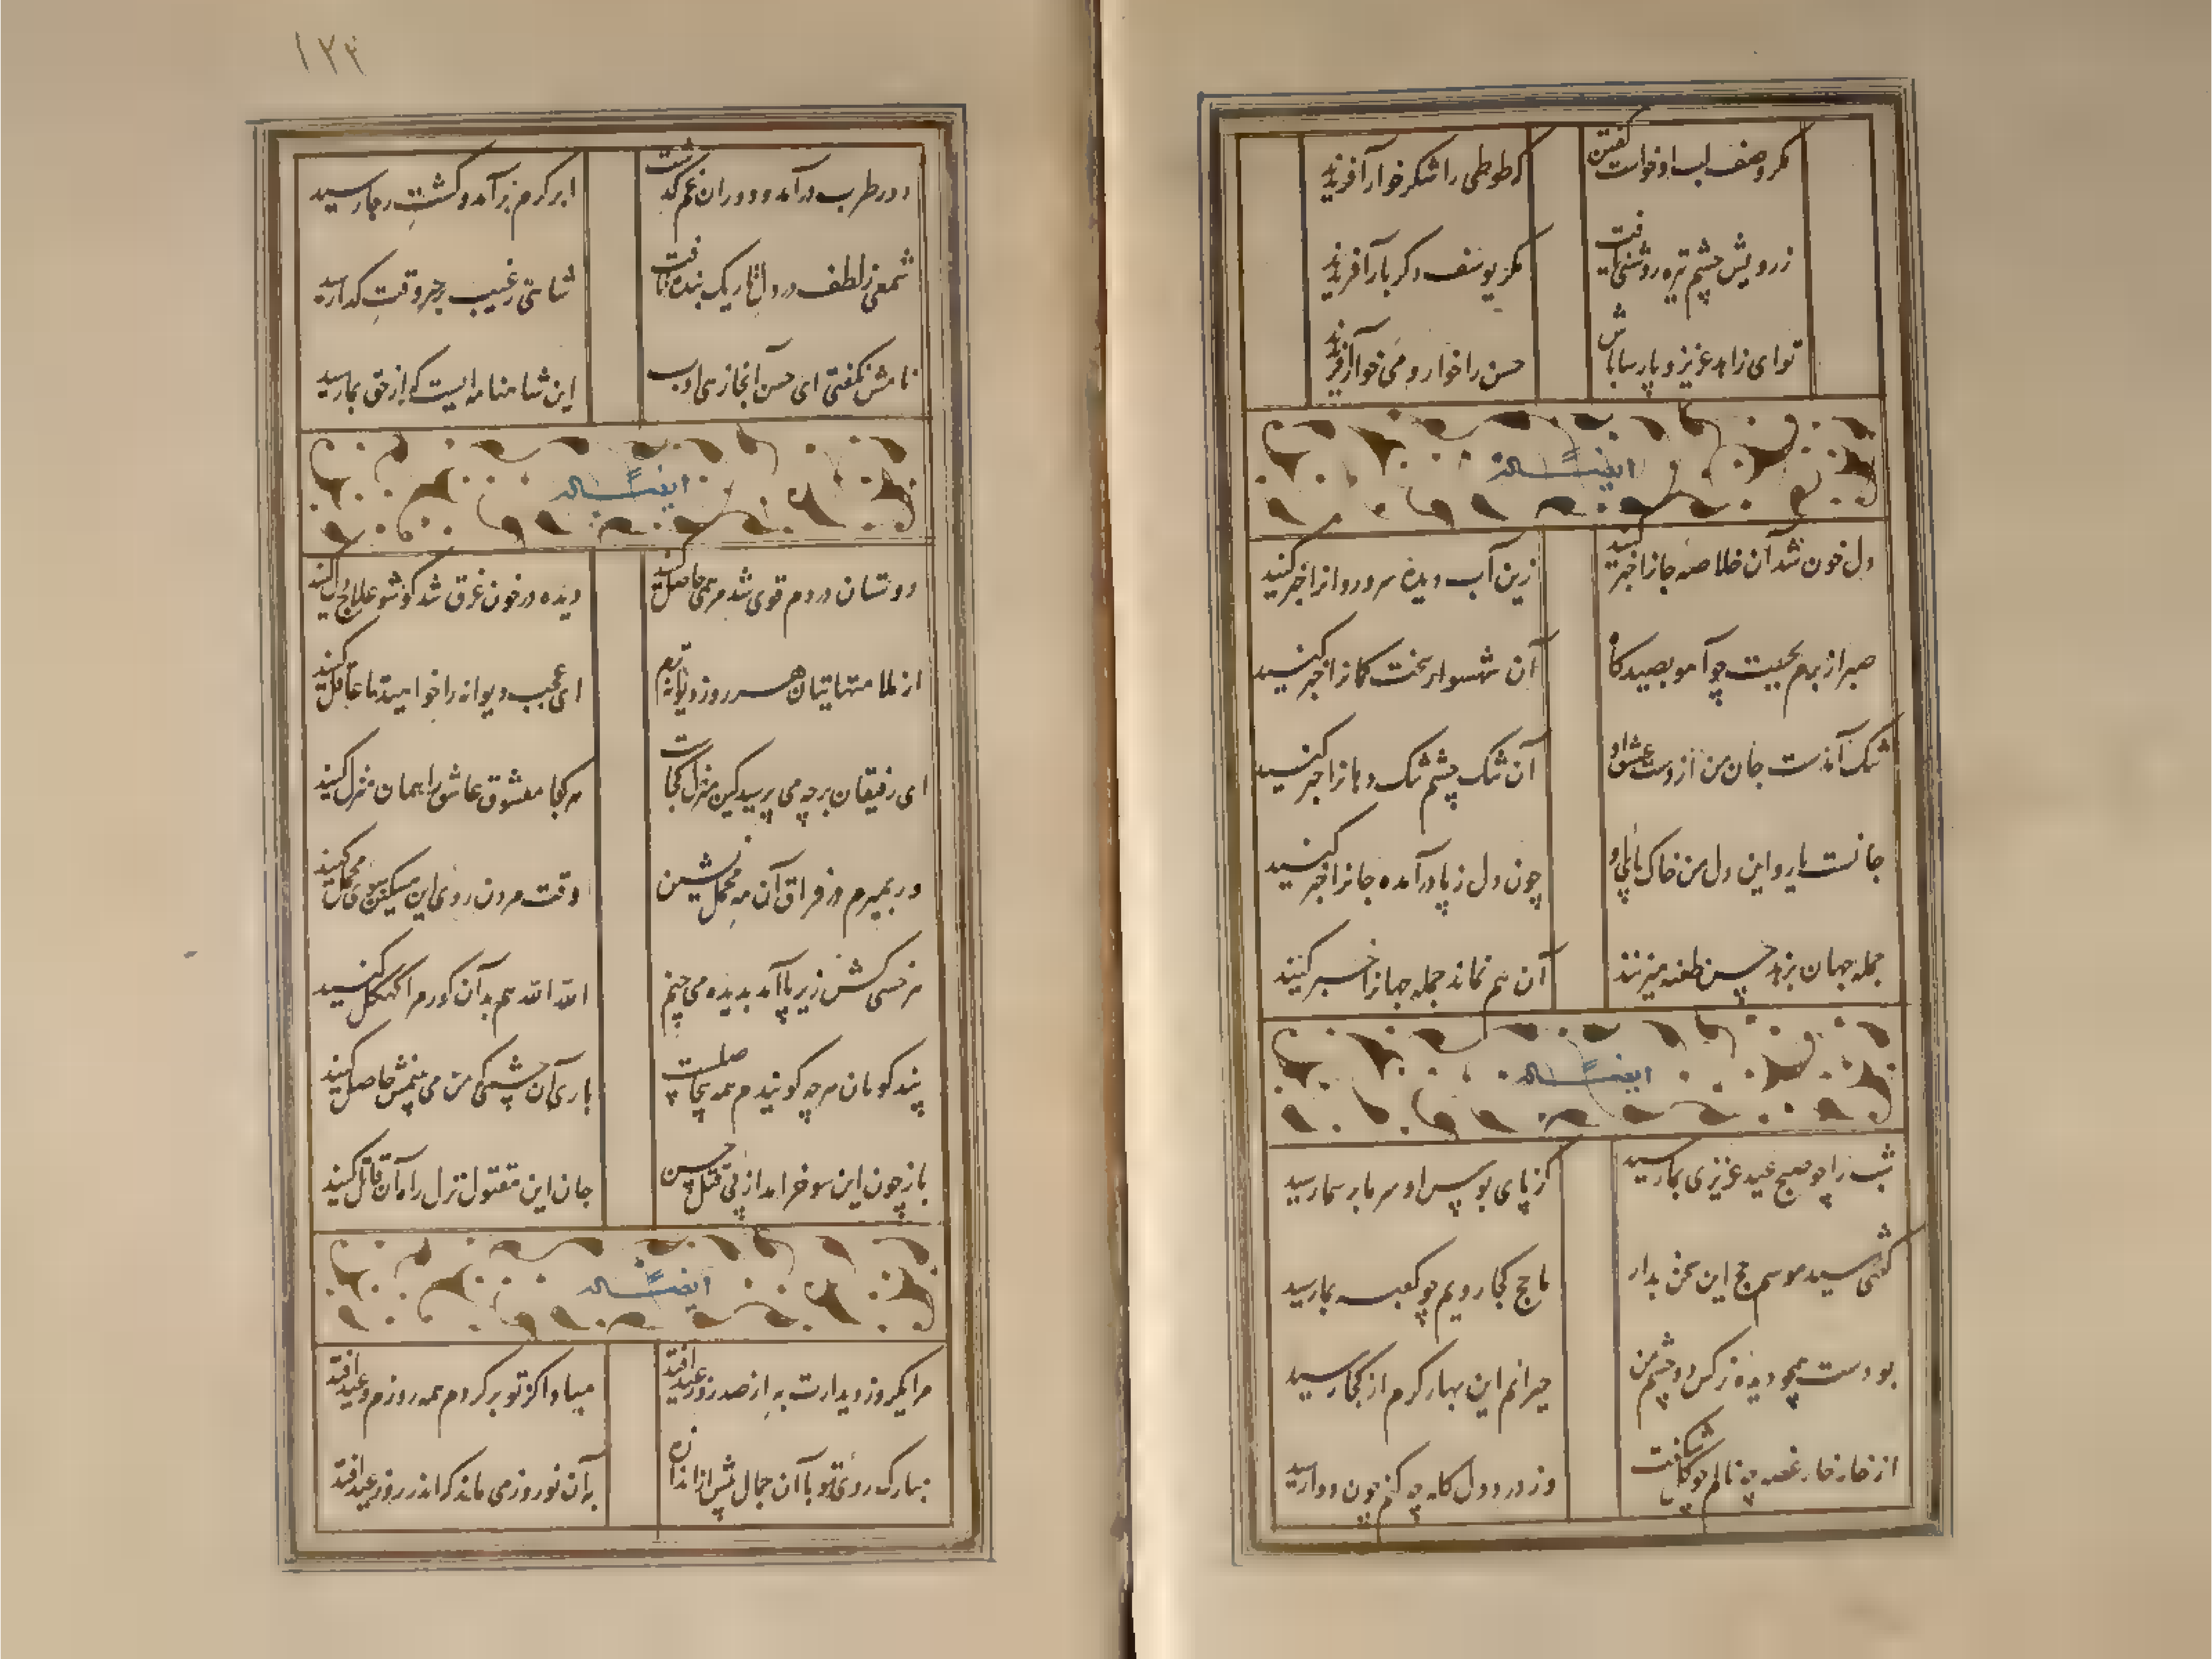 مگر وصف لب او خواست گفتن
که طوطی را شکر خوار آفریدند
ز رویش چشم تیره روشنی یافت
مگر یوسف دگر بار آفریدند
تو ای زاهد عزیز و پارسا باش
حسن را خوار و می خوار آفریدند
ایضاً له
دل خون شد آن خلاصه جانرا خبر کنید
زین آب دیده سرو روانرا خبر کنید
صبر از برم بجست چو آهو بصیدگاه
آن شهسوار سخت کمانرا خبر کنید
تنک آمدست جان من از دست عشق او
آن تنک چشم تنک دهانرا خبر کنید
جانست یار و این دل من خاک پای او
چون دل ز پا درآمده جانرا خبر کنید
جمله جهان بزهد حسن طعنه میزنند
آن هم نماند جمله جهانرا خبر کنید
ایضاً له
شب را چو صبح عید عزیزی بما رسید
کز پای بوس او سر ما بر سما رسید
گفتی رسید موسم حج این سخن بدار
ما حج کجا رویم چو کعبه بما رسید
بودست همچو دیده نرکس دو چشم من
حیرانم این بهار کرم از کجا رسید
از خار خار غصه چه نالم چو گل شکفت
وز درد دل کله چه کنم چون دوا رسید
۱۲۴
دور طرب درآمد و دوران غم گذشت
ابر کرم برآمد و کشت رجا رسید
شمعی ز لطف در دل تاریک بنده تافت
شاهی ز غیب بر در وقت کدا رسید
نامش نکفتی ای حسن آنجا زهی ادب
این شاهنامه ایست که از حق بما رسید
ایضاً له
دوستان دردم قوی شد مرهمی حاصل کنید
دیده در خون غرق شد کوشو علاج دل کنید
از ملامتهایتان هر روز دیوانه ترم
ای عجب دیوانه را خواهید تا عاقل کنید
ای رفیقان بر چه می پرسید کین منزل کجاست
هر کجا معشوق عاشق را همان منزل کنید
ور بمیرم در فراق آن مه محمل نشین
وقت مردن روی این مسکین سوی محمل کنید
هر خسی کش زیر پا آمد بدیده می چنم
الله الله هم بدان کورم را کهگل کنید
پند گویان هرچه گویندم همه بیحاصلست
باری آن چشمی که من می بینمش حاصل کنید
باز چون این سو خرامد از پی قتل حسن
جان این مقتول نزل راه آن قاتل کنید
ایضاً له
مرا یکروز دیدارت به از صد روز عید افتد
مبادا کز تو بر گردم همه روزم وعید افتد
مبارک روی تو با آن جمال بیش از اندازه
به آن نوروز می ماند که اندر روز عید افتد